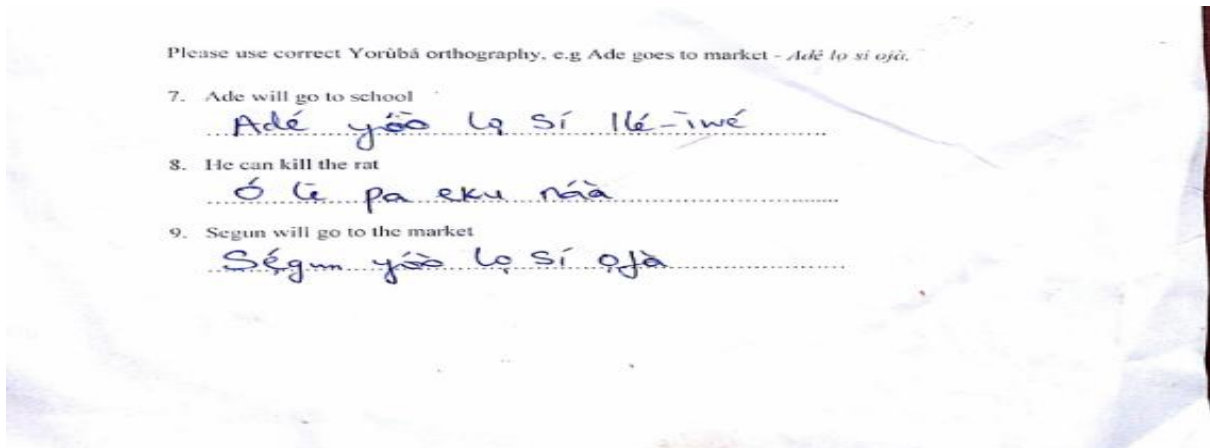 Please use correct Yorùbá orthography, e.g Ade goes to market - Adé lọ sí ọjà.
7. Ade will go to school
Adé yóò lọ sí Ilé-ìwé
8. He can kill the rat
Ó lè pa eku náà
9. Segun will go to the market
Ṣẹ́gun yóò lọ sí ọjà